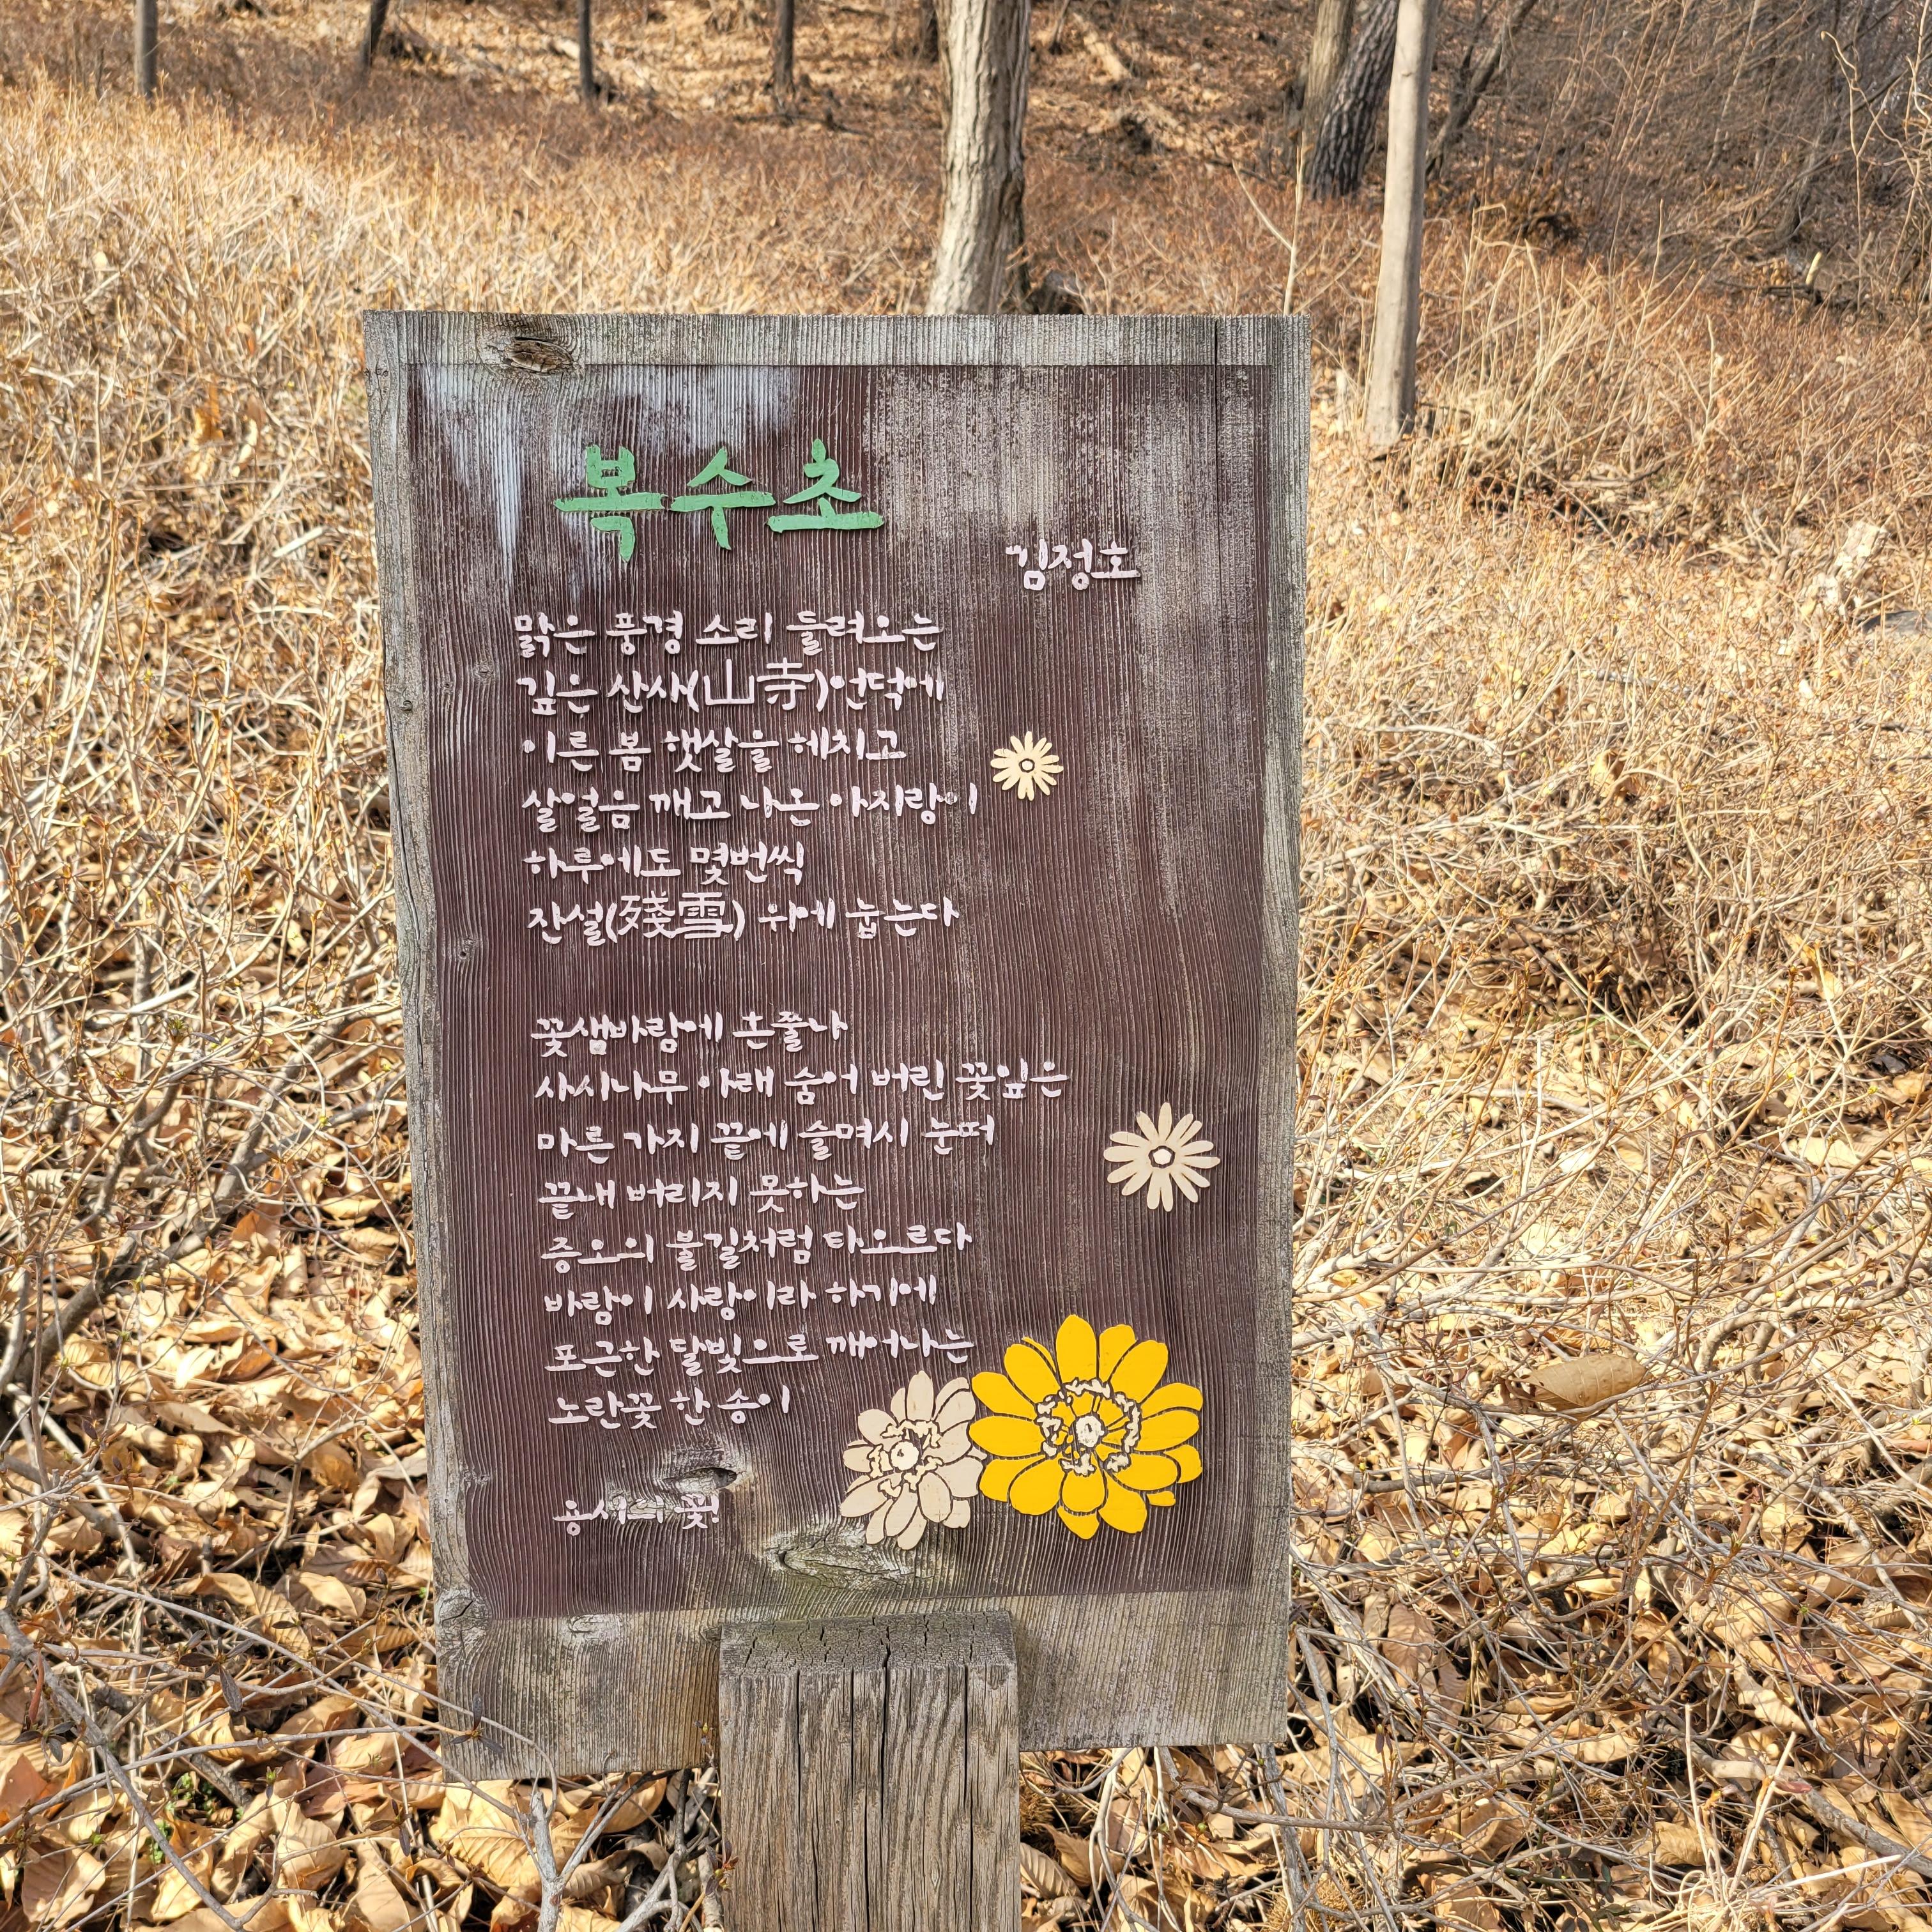 복수초
김정호
맑은 풍경 소리 들려오는
깊은 산사(山寺)언덕에
이른 봄 햇살을 헤치고
살얼음 깨고 나온 아지랑이
하루에도 몇번씩
잔설(殘雪) 위에 눕는다
꽃샘바람에 혼쭐나
사시나무 아래 숨어 버린 꽃잎은
마른 가지 끝에 슬며시 눈떠
끝내 버리지 못하는
증오의 불길처럼 타오르다
바람이 사랑이라 하기에
포근한 달빛으로 깨어나는
노란꽃 한 송이
용서의 꽃!